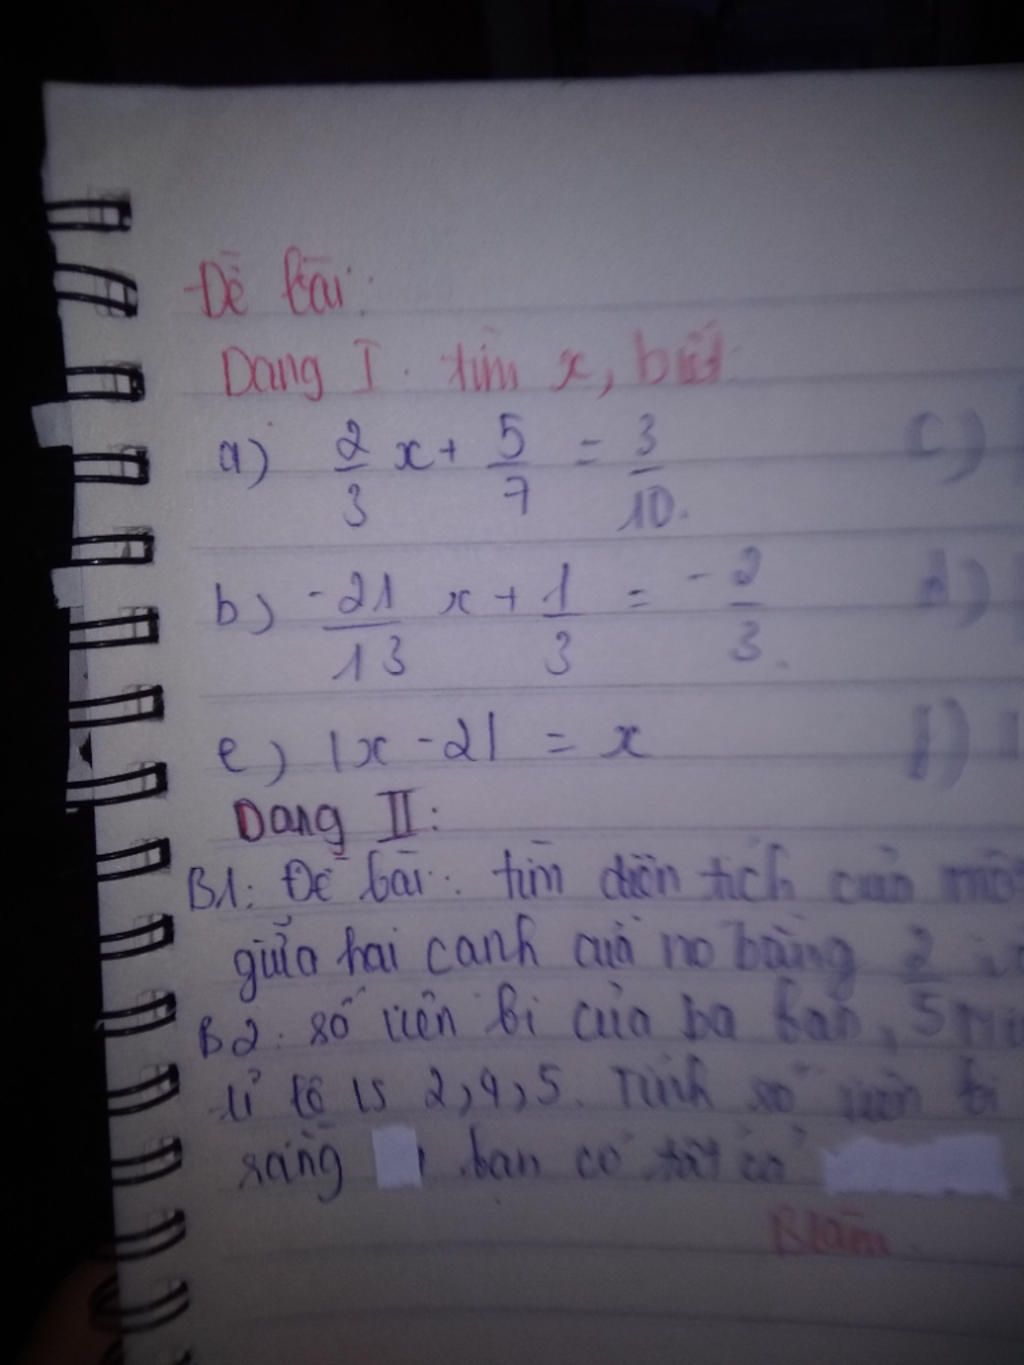 Đề bài:
Dạng I. tìm x, biết
a) 2/3 x + 5/7 = 3/10. c)
b) -21/13 x + 1/3 = -2/3. d)
e) |x - 2| = x f)
Dạng II:
B1: Đề bài: tìm diện tích của
giữa hai cạnh của nó bằng 2/5
B2: số viên bi của ba bạn,
tỉ lệ 2, 4, 5. Tính số viên bi
rằng bạn có tất cả
Blàm